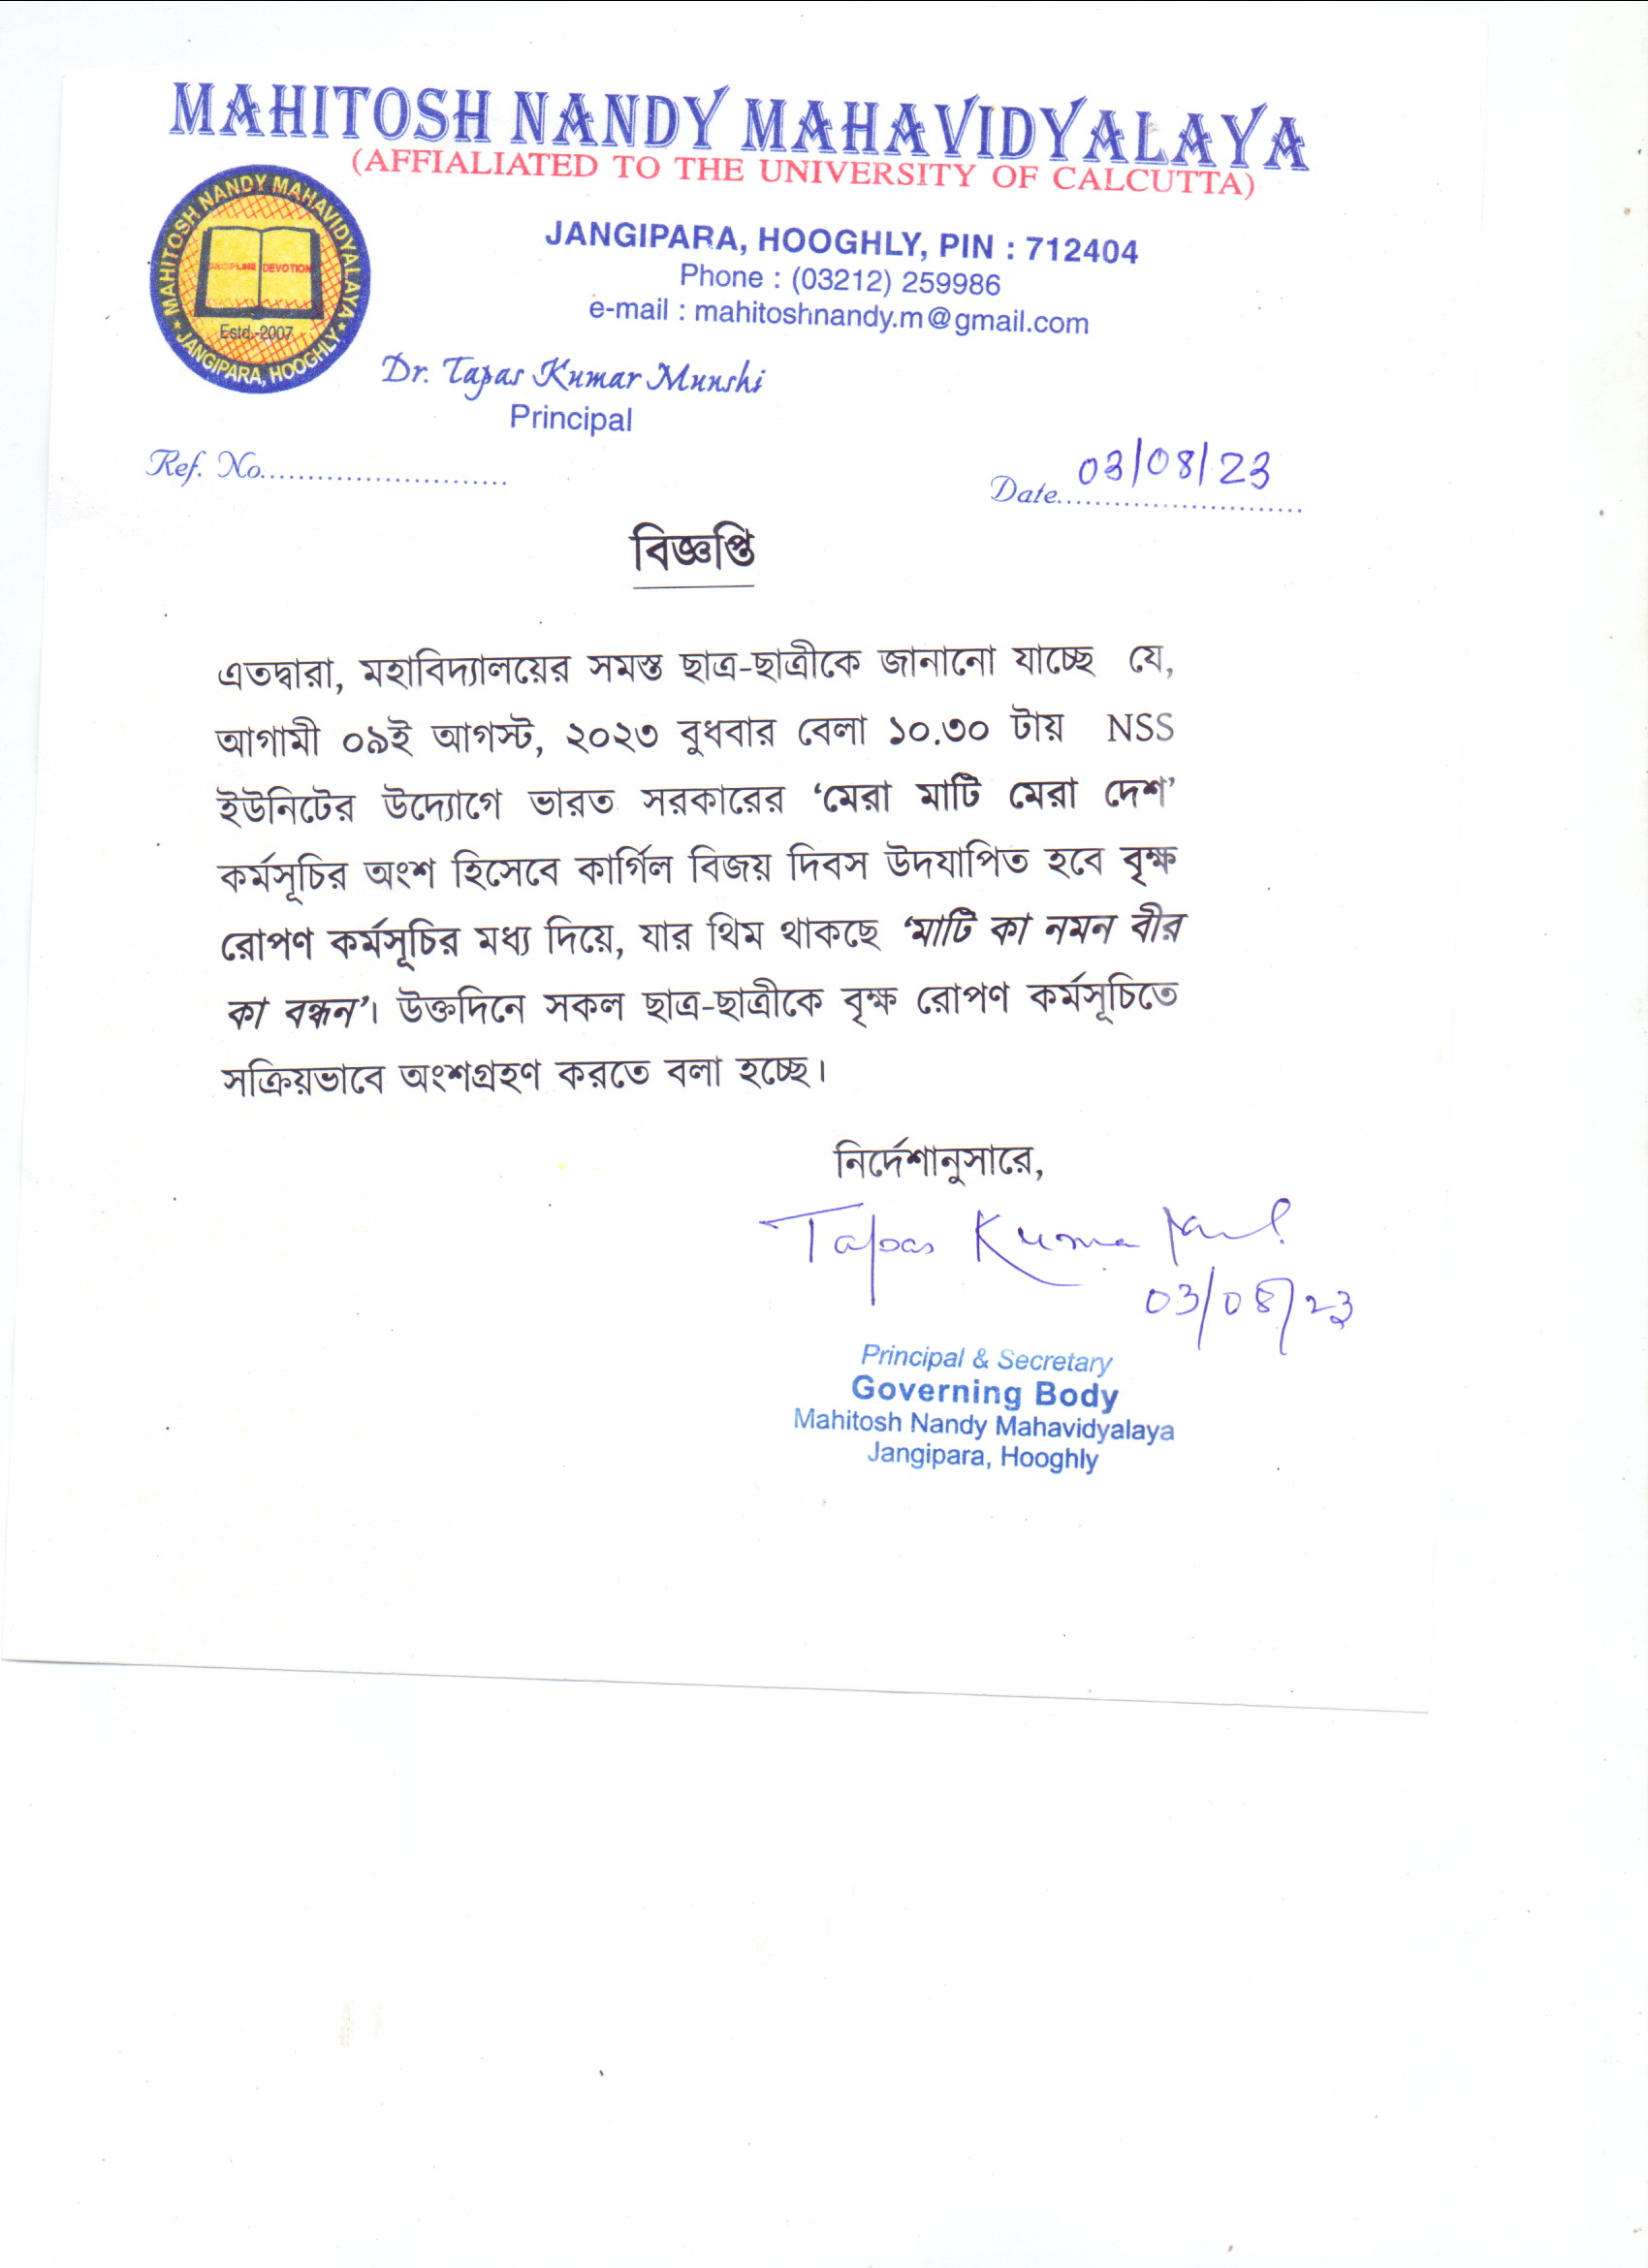 MAHITOSH NANDY MAHAVIDYALAYA
(AFFIALIATED TO THE UNIVERSITY OF CALCUTTA)
MAHITOSH NANDY MAHAVIDYALAYA
DISCIPLINE DEVOTION
Estd.-2007
★ JANGIPARA, HOOGHLY ★
JANGIPARA, HOOGHLY, PIN : 712404
Phone : (03212) 259986
e-mail : mahitoshnandy.m@gmail.com
Dr. Tapas Kumar Munshi
Principal
Ref. No...........................
Date........................... 03/08/23
বিজ্ঞপ্তি
এতদ্বারা, মহাবিদ্যালয়ের সমস্ত ছাত্র-ছাত্রীকে জানানো যাচ্ছে যে,
আগামী ০৯ই আগস্ট, ২০২৩ বুধবার বেলা ১০.৩০ টায় NSS
ইউনিটের উদ্যোগে ভারত সরকারের ‘মেরা মাটি মেরা দেশ’
কর্মসূচির অংশ হিসেবে কার্গিল বিজয় দিবস উদযাপিত হবে বৃক্ষ
রোপণ কর্মসূচির মধ্য দিয়ে, যার থিম থাকছে ‘মাটি কা নমন বীর
কা বন্ধন’। উক্তদিনে সকল ছাত্র-ছাত্রীকে বৃক্ষ রোপণ কর্মসূচিতে
সক্রিয়ভাবে অংশগ্রহণ করতে বলা হচ্ছে।
নির্দেশানুসারে,
Tapas Kumar
03/08/23
Principal & Secretary
Governing Body
Mahitosh Nandy Mahavidyalaya
Jangipara, Hooghly